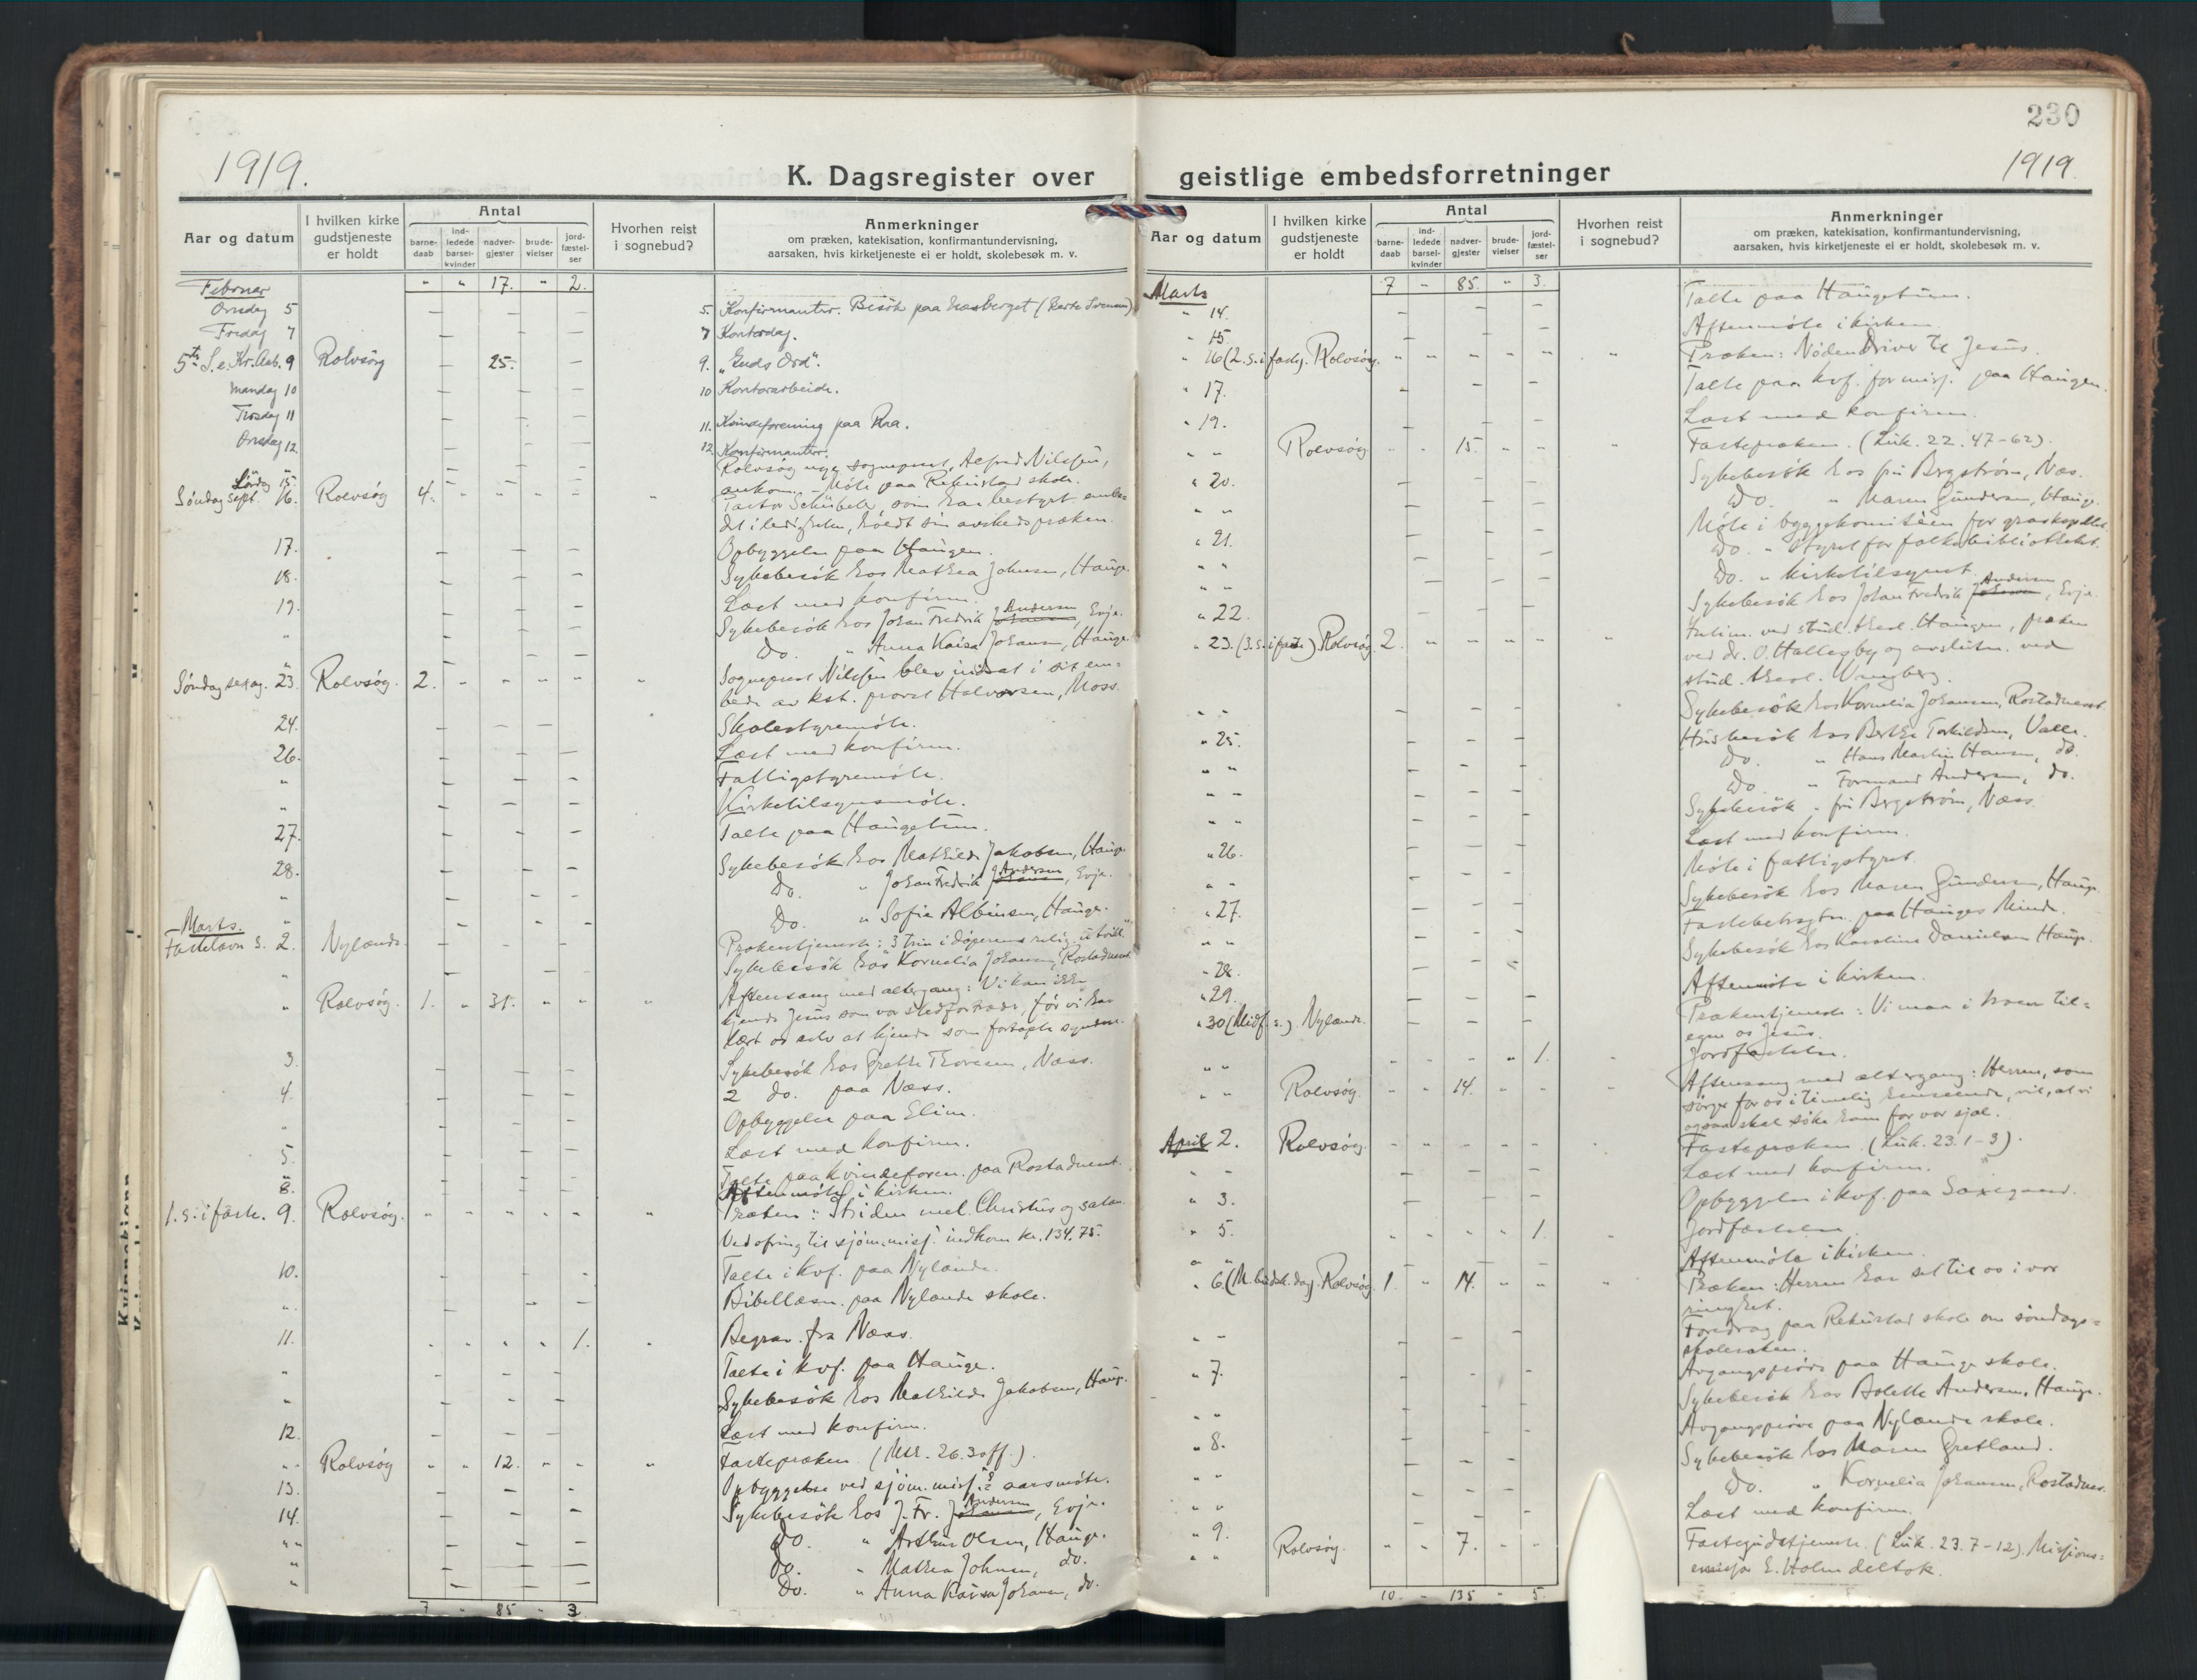 230
1919.
1919.
K. Dagsregister over geistlige embedsforretninger
Aar og datum
I hvilken kirke gudstjeneste er holdt
Antal
barne-daab
ind-ledede barsel-kvinder
nadver-gjester
brude-vielser
jord-fæstel-ser
Hvorhen reist i sognebud?
Anmerkninger
om præken, katekisation, konfirmantundervisning,
aarsaken, hvis kirketjeneste ei er holdt, skolebesøk m. v.
Februar " " 17. " 2.
Onsdag 5 5. Konfirmanter. Besök paa
Fredag 7 7 Kontordag.
5te S.e.Kr.Aab. 9 Rolvsög 25. 9. „Guds Ord".
Mandag 10 10 Kontorarbeide.
Tirsdag 11 11. Kvindeforening paa Raa.
Onsdag 12 12 Konfirmanter.
Lördag 15. Rolvsög nye sogneprest, Alfred Nilssen,
ankom. - Möte paa Rekustad skole.
Söndag sept. 16. Rolvsög 4. Pastor Schübeler, som har bestyret embe-
det i ledigheten, holdt sin avskedspræken.
17. Opbyggelse paa Haugen.
18. Sykebesök hos Mathea Johnsen, Hauge.
19. Læst med konfirm.
Sykebesök hos Johan Fredrik Andersen, Evje.
" Do. " Anna Kaisa Johansen, Hauge.
Söndag sexag. 23. Rolvsög. 2. Sogneprest Nilssen blev indsat i sit em-
bede av kst. provst Halvorsen, Moss.
24. Skolestyremöte.
26. Læst med konfirm.
" Fattigstyremöte.
" Kirketilsynsmöte.
27. Talte paa Haugetun.
28. Sykebesök hos Mathilde Jakobsen, Hauge.
" Do. " Johan Fredrik Andersen, Evje.
" Do. " Sofie Albinsen, Hauge.
Marts.
Fastelavn s. 2. Nylænde. Prækentjeneste: 3 trin i döperens relig. utvikl.
" Sykebesök hos Kornelia Johansen, Rostadneset.
" Rolvsög. 1. " 31. " " Aftensang med altergang: Vi kan ikke
kjende Jesus som vor stedfortræder, för vi har
lært os selv at kjende som fortapte syndere.
3. Sykebesök hos Grethe Thoresen, Næss.
4. 2 do. paa Næss.
" Opbyggelse paa Elim.
5. Læst med konfirm.
" Talte paa kvindeforen. paa Rostadneset.
8. Aftenmöte i kirken.
1. s. i faste. 9. Rolvsög. Præken: Striden mel. Christus og satan.
Ved ofring til sjömmisj. indkom kr. 134.75.
10. Talte i kvf. paa Nylænde.
" Bibellæsn. paa Nylænde skole.
11. 1. Begrav. fra Næss.
" Talte i kvf. paa Hauge.
" Sykebesök hos Mathilde Jakobsen, Hauge.
12. Læst med konfirm.
" Rolvsög 12. Fastepræken (Mtt. 26.30ff.)
13. Opbyggelse ved sjöm.misj.s aarsmöte.
14. Sykebesök hos J. Fr. Andersen, Evje.
" Do. " Arthur Olsen, Hauge.
" Do. " Mathea Johnsen, do.
" Do. " Anna Kaisa Johansen, do.
7 " 85 " 3
Aar og datum
I hvilken kirke gudstjeneste er holdt
Antal
barne-daab
ind-ledede barsel-kvinder
nadver-gjester
brude-vielser
jord-fæstel-ser
Hvorhen reist i sognebud?
Anmerkninger
om præken, katekisation, konfirmantundervisning,
aarsaken, hvis kirketjeneste ei er holdt, skolebesøk m. v.
Marts 7 " 85. " 3.
" 14. Talte paa Haugetun.
" 15. Aftenmöte i kirken.
" 16 (2. s. i faste). Rolvsög. Præken: Nöden driver til Jesus.
" 17. Talte paa kvf. for misj. paa Haugen.
" 19. Læst med konfirm.
" " Rolvsög 15. Fastepræken. (Luk. 22. 47-62).
" 20. Sykebesök hos fru Bergström, Næs.
" " Do. " Maren Gundersen, Hauge.
" 21. Möte i byggekomitéen for gravkapellet.
" " Do. " styret for folkebiblioteket.
" " Do. " kirketilsynet.
" 22. Sykebesök hos Johan Fredrik Andersen, Evje.
" 23. (3. s. i faste) Rolvsög 2. Intim. ved stud. theol. Haugen, præken
ved dr. O. Hallesby og avslutn. ved
stud. theol. Wingberg.
" " Sykebesök hos Kornelia Johansen, Rostadneset.
" 25. Husbesök hos Berthe Torkildsen, Valle.
" " Do. " Hans Martin Hansen, do.
" " Do. " Formand Andersen, do.
" " Sykebesök " fru Bergström, Næss.
" 26. Læst med konfirm.
" " Möte i fattigstyret.
" 27. Sykebesök hos Maren Gundersen, Hauge.
" " Fastebetragtn. paa Hauges Minde.
" 28. Sykebesök hos Karoline Danielsen, Hauge.
" 29. Aftenmöte i kirken.
" 30 (Midf. s.). Nylænde. Prækentjeneste: Vi maa i troen til-
egne os Jesus.
" " 1. Jordfæstelse.
" " Rolvsög. 14. Aftensang med altergang: Herren, som
sörger for os i timelig henseende, vil, at vi
ogsaa skal söke ham for vor sjæl.
April 2. Rolvsög. Fastepræken (Luk. 23. 1-3).
" " Læst med konfirm.
" 3. Opbyggelse i kvf. paa Saxegaard.
" 5. 1. Jordfæstelse
" " Aftenmöte i kirken.
" 6. (M. budsk. dag). Rolvsög 1 " 14. Præken: Herren har set til os i vor
ringhet.
" " Foredrag paa Rekustad skole om söndags-
skolesaken.
" 7. Avgangspröve paa Hauge skole.
" " Sykebesök hos Bolette Andersen, Hauge.
" 8. Avgangspröve paa Nylænde skole.
" " Sykebesök hos Maren Gretland.
" " Do. " Kornelia Johansen, Rostadnes.
" 9. Læst med konfirm.
" " Rolvsög. 7. Fastegudstjeneste (Luk. 23. 7-12). Misjons-
emissær E. Holm deltok.
10 " 135 " 5.